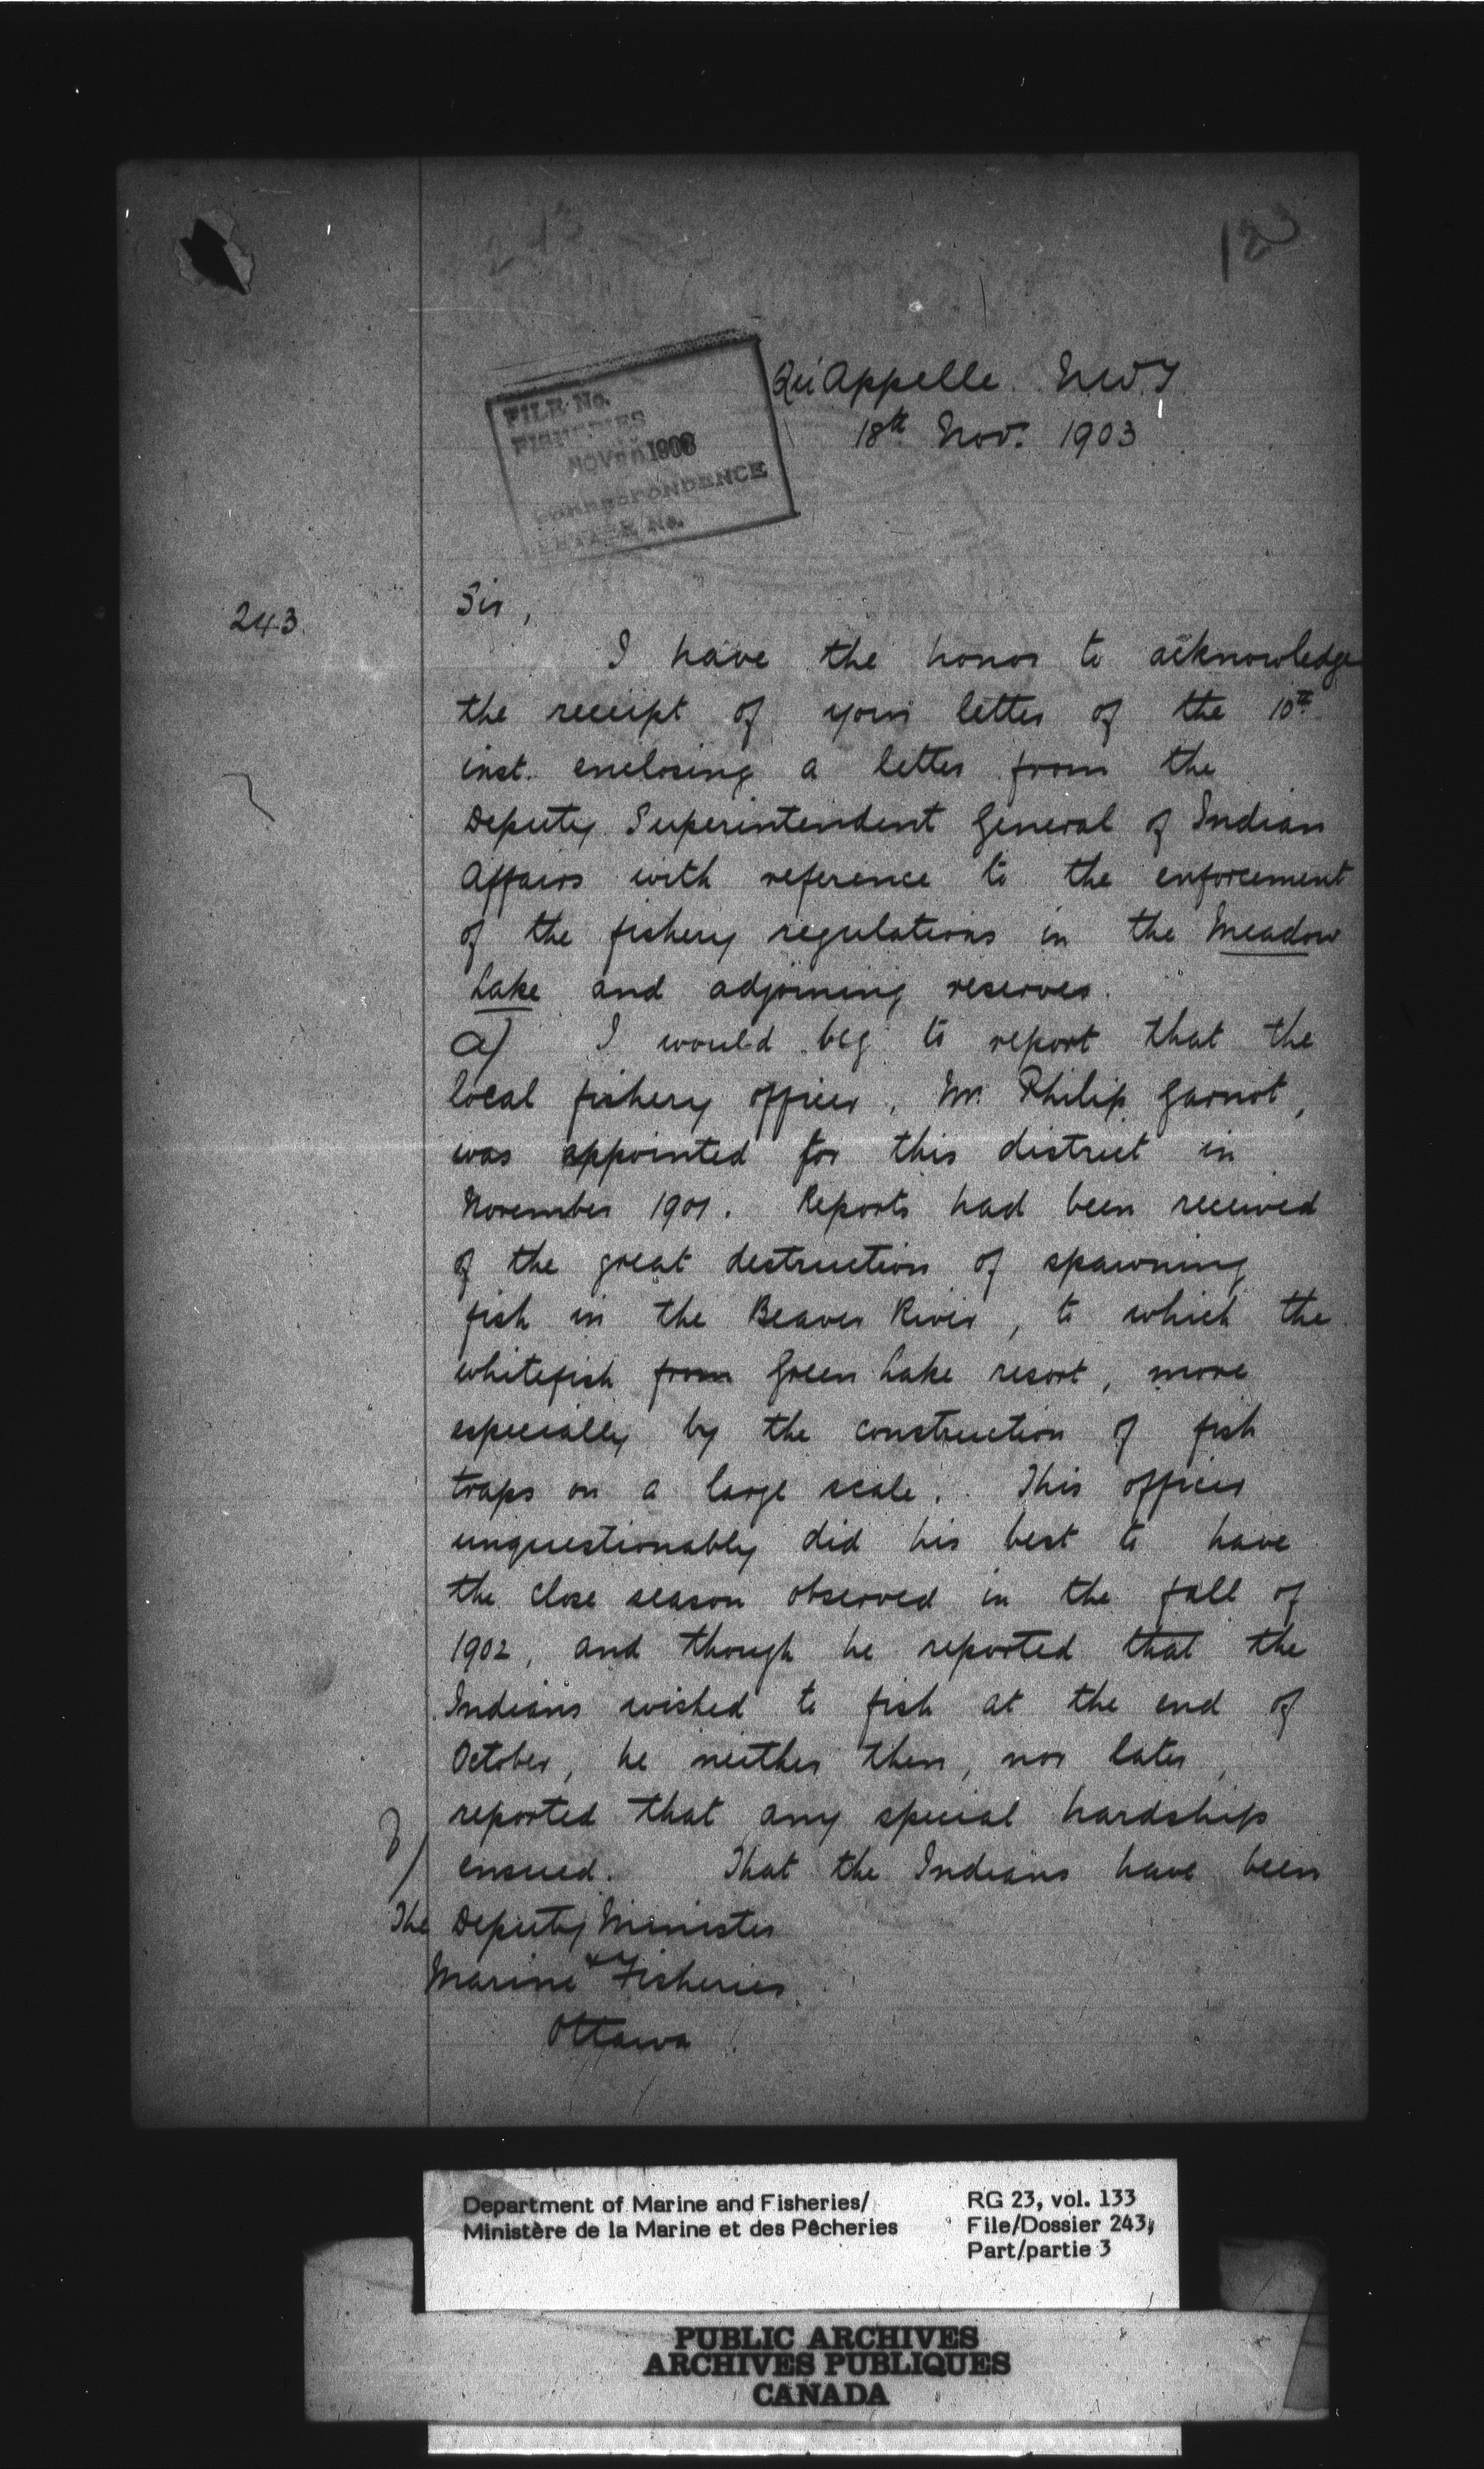 Qu'Appelle. N.W.T.
18th Nov. 1903
FILE No.
FISHERIES
NOV 1903
CORRESPONDENCE
LETTER No.
243.
Sir,
I have the honor to acknowledge
the receipt of your letter of the 10th
inst. enclosing a letter from the
Deputy Superintendent General of Indian
Affairs with reference to the enforcement
of the fishery regulations in the Meadow
Lake and adjoining reserves.
a) I would beg to report that the
local fishery officer, Mr. Philip Garnot,
was appointed for this district in
November 1901. Reports had been received
of the great destruction of spawning
fish in the Beaver River, to which the
whitefish from Green Lake resort, more
especially by the construction of fish
traps on a large scale. This officer
unquestionably did his best to have
the close season observed in the fall of
1902, and though he reported that the
Indians wished to fish at the end of
October, he neither then, nor later,
reported that any special hardship
ensued. That the Indians have been
The Deputy Minister
Marine & Fisheries
Ottawa
Department of Marine and Fisheries/
Ministère de la Marine et des Pêcheries
RG 23, vol. 133
File/Dossier 243,
Part/partie 3
PUBLIC ARCHIVES
ARCHIVES PUBLIQUES
CANADA